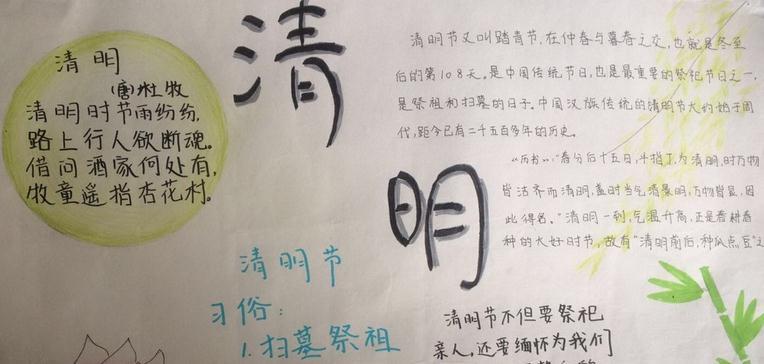 清明
(唐)杜牧
清明时节雨纷纷,
路上行人欲断魂。
借问酒家何处有,
牧童遥指杏花村。
清
明
清明节又叫踏青节,在仲春与暮春之交,也就是冬至
后的第108天。是中国传统节日,也是最重要的祭祀节日之一,
是祭祖和扫墓的日子。中国汉族传统的清明节大约始于周
代,距今已有二千五百多年的历史。
《历书》:"春分后十五日,斗指丁,为清明,时万物
皆洁齐而清明,盖时当气清景明,万物皆显,因
此得名。"清明一到,气温升高,正是春耕春
种的大好时节,故有"清明前后,种瓜点豆"之
清明节
习俗:
1.扫墓祭祖
清明节不但要祭祀
亲人,还要缅怀为我们